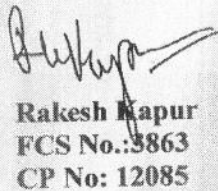 Rakesh Kapur
FCS No.:3863
CP No: 12085